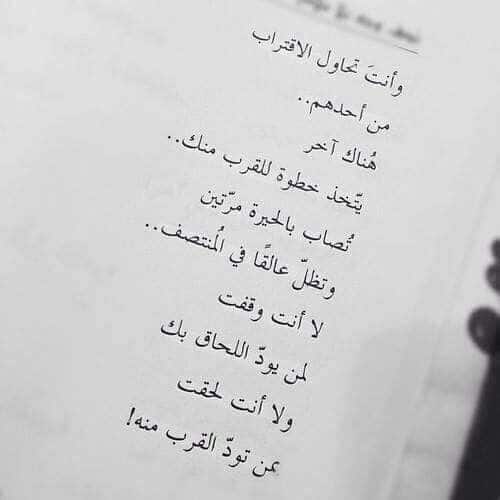 وأنتَ تحاول الاقتراب
من أحدهم..
هُناك آخر
يتّخذ خطوة للقرب منك..
تُصاب بالحيرة مرّتين
وتظلّ عالقًا في المُنتصف..
لا أنت وقفت
لمن يودّ اللحاق بك
ولا أنت لحقت
بمن تودّ القرب منه!